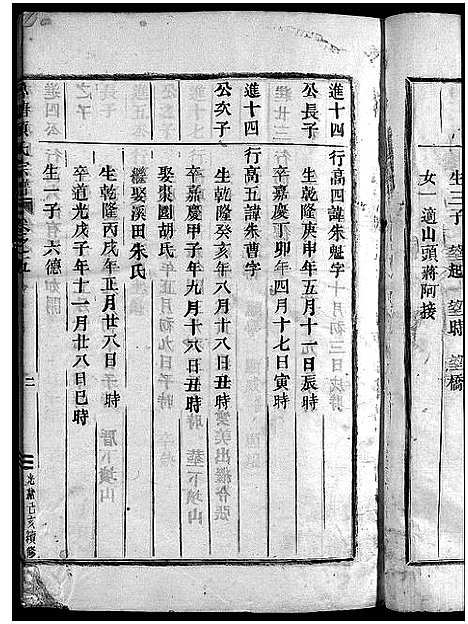 生三子 望起 望時 望橋
女一 適山頭蔣阿接
進十四 行高四諱朱魁字
公長子 生乾隆庚申年五月十一日辰時
卒嘉慶丁卯年四月十七日寅時
進十四 行高五諱朱曹字
公次子 生乾隆癸亥年八月十八日丑時
卒嘉慶甲子年九月十六日丑時 葬下墳山
娶棗園胡氏
繼娶溪田朱氏
生乾隆丙戌年正月廿八日 時
卒道光戊子年十一月廿八日巳時 厝下墳山
生一子 六德
光緒己亥續修